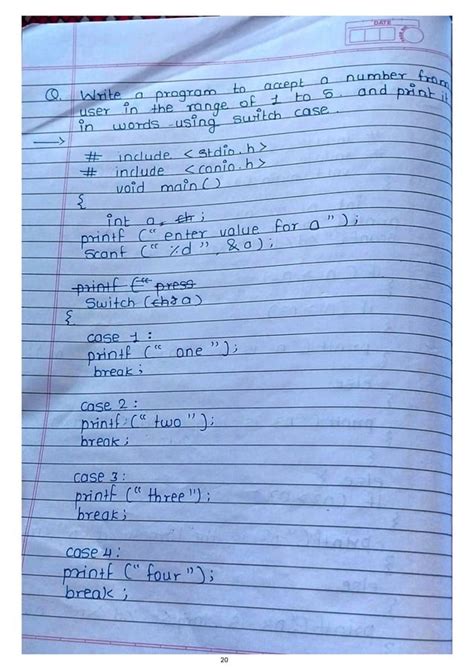 DATE
Q. Write a program to accept a number from
user in the range of 1 to 5. and print it
in words using switch case.
# include <stdio.h>
# include <conio.h>
void main()
{
int a, ch;
printf (" enter value for a ");
scanf (" %d ", &a);
printf (" press
Switch (ch a)
{
case 1 :
printf (" one ");
break ;
case 2 :
printf (" two ");
break ;
case 3 :
printf (" three");
break ;
case 4 :
printf (" four ");
break ;
20